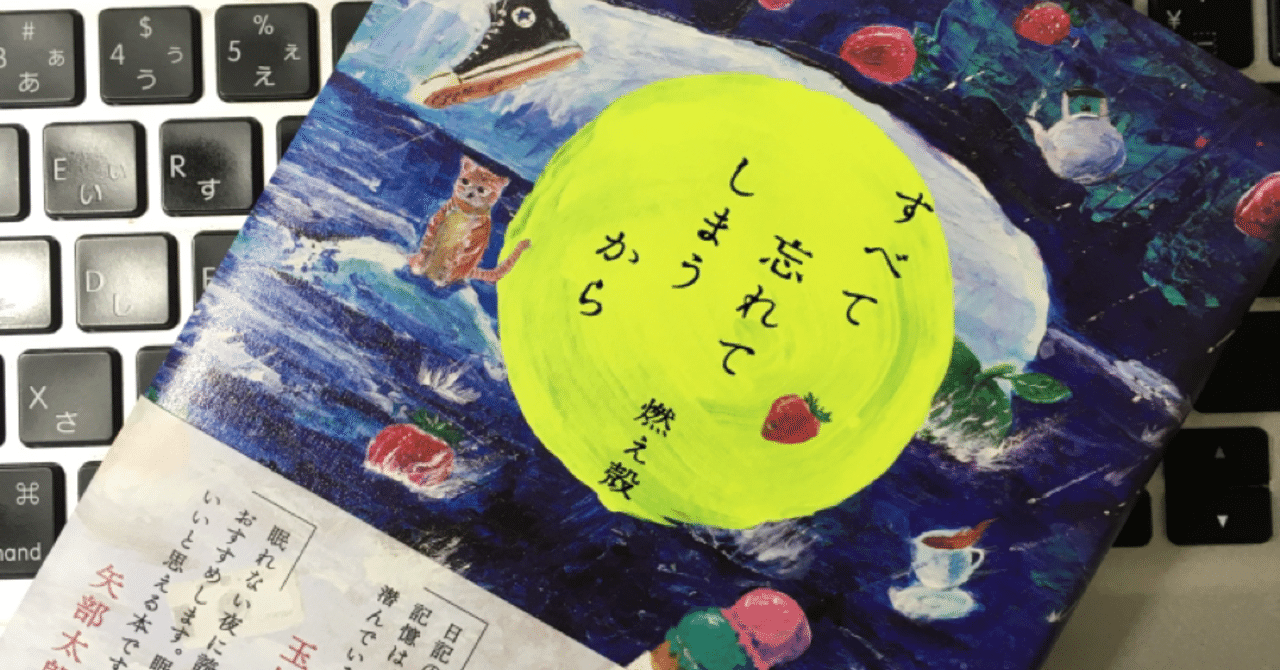 すべて
忘れて
しまう
から
燃え殻
日記の
記憶は
潜んでい
玉
眠れない夜に
おすすめします。眠
いいと思える本です
矢部太郎
# 3 ぁ あ
$ 4 ぅ う
% 5 ぇ え
E ぃ い
R す
D し
X さ
⌘
mand
¥